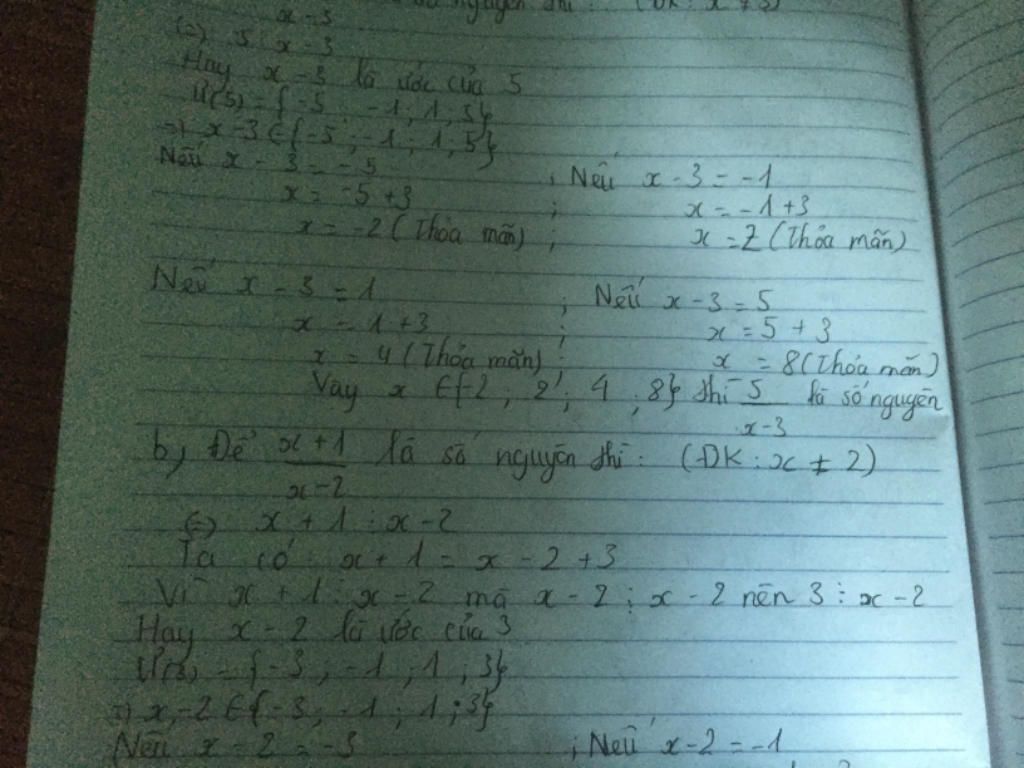 x-3
là số nguyên thì: (ĐK: x ≠ 3)
(=) 5 ⋮ x - 3
Hay x - 3 là ước của 5
Ư(5) = {-5 ; -1 ; 1 ; 5}
=) x - 3 ∈ {-5 ; -1 ; 1 ; 5}
Nếu x - 3 = -5 ; Nếu x - 3 = -1
x = -5 + 3 ; x = -1 + 3
x = -2 (Thỏa mãn) ; x = 2 (Thỏa mãn)
Nếu x - 3 = 1 ; Nếu x - 3 = 5
x = 1 + 3 ; x = 5 + 3
x = 4 (Thỏa mãn) ; x = 8 (Thỏa mãn)
Vậy x ∈ {-2 ; 2 ; 4 ; 8} thì 5 là số nguyên
x-3
b, Để x+1 là số nguyên thì: (ĐK: x ≠ 2)
x-2
(=) x + 1 ⋮ x - 2
Ta có: x + 1 = x - 2 + 3
Vì x + 1 ⋮ x - 2 mà x - 2 ⋮ x - 2 nên 3 ⋮ x - 2
Hay x - 2 là ước của 3
Ư(3) = {-3 ; -1 ; 1 ; 3}
=) x - 2 ∈ {-3 ; -1 ; 1 ; 3}
Nếu x - 2 = -3 ; Nếu x - 2 = -1